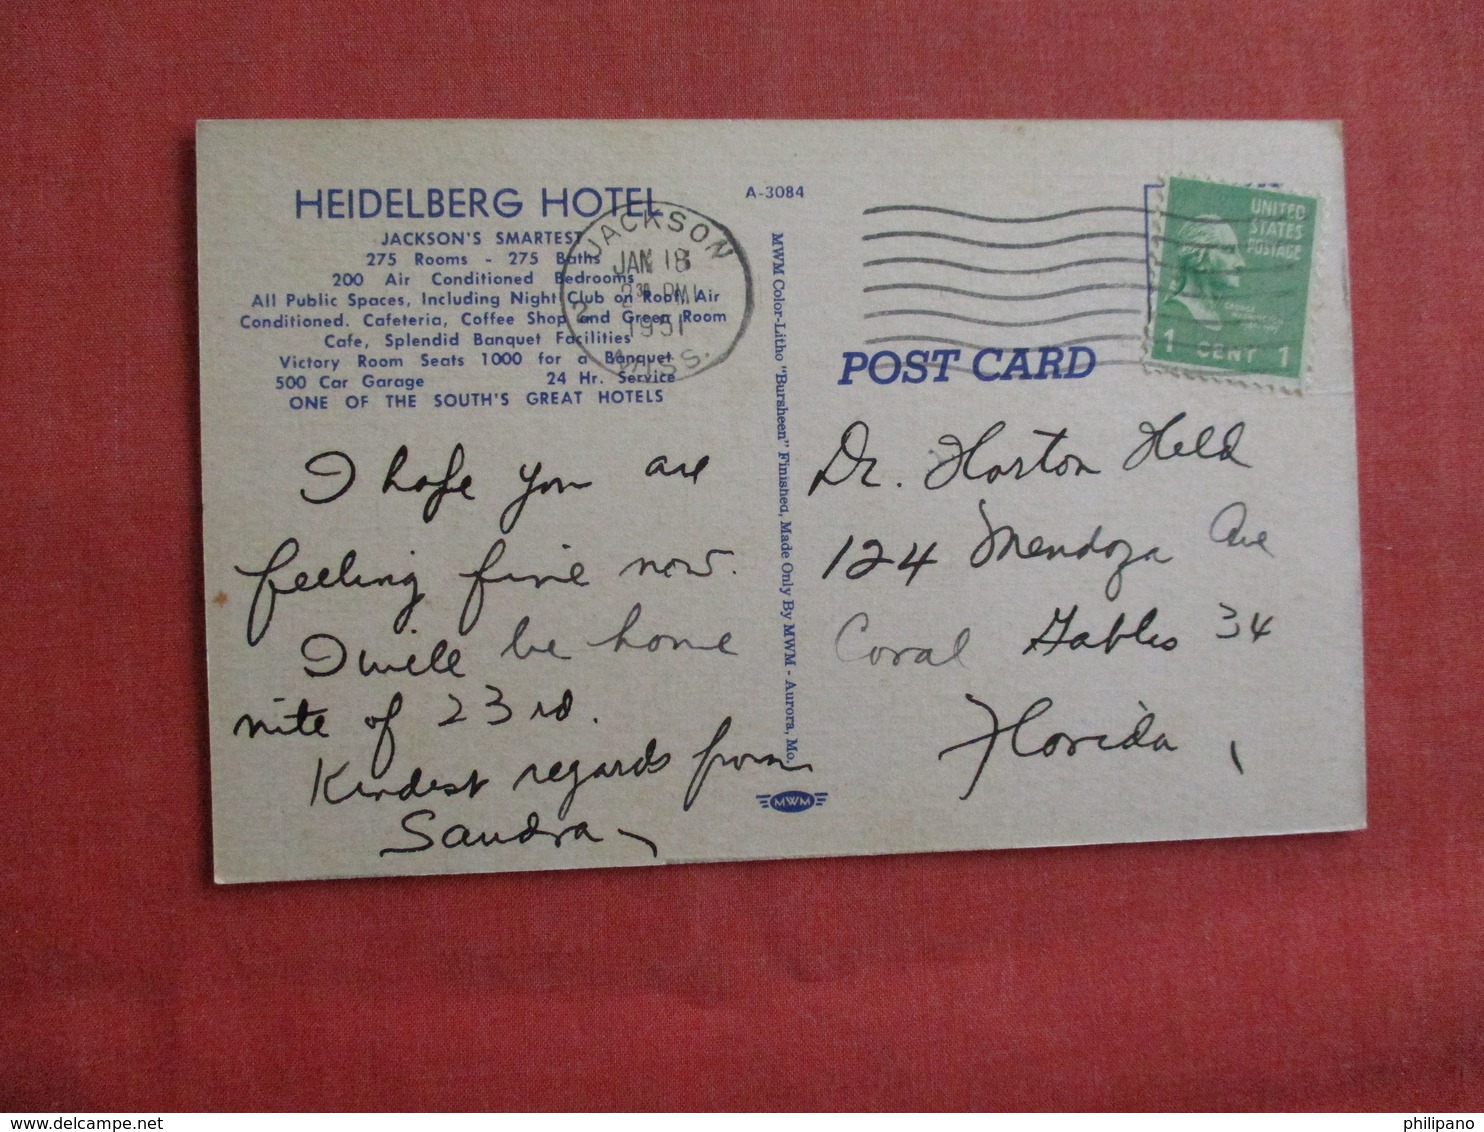 HEIDELBERG HOTEL
JACKSON'S SMARTEST
275 Rooms - 275 Baths
200 Air Conditioned Bedrooms
All Public Spaces, Including Night Club on Roof, Air
Conditioned. Cafeteria, Coffee Shop and Green Room
Cafe, Splendid Banquet Facilities
Victory Room Seats 1000 for a Banquet
500 Car Garage 24 Hr. Service
ONE OF THE SOUTH'S GREAT HOTELS
JACKSON
JAN 18
2 30 PM
1951
2 MISS.
I hope you are
feeling fine now.
I will be home
nite of 23rd.
Kindest regards from
Sandra
A-3084
MWM Color-Litho "Bursheen" Finished, Made Only By MWM - Aurora, Mo.
MWM
UNITED
STATES
POSTAGE
1 CENT 1
POST CARD
Dr. Horton Held
124 Mendoza Ave
Coral Gables 34
Florida
delcampe.net
philipano